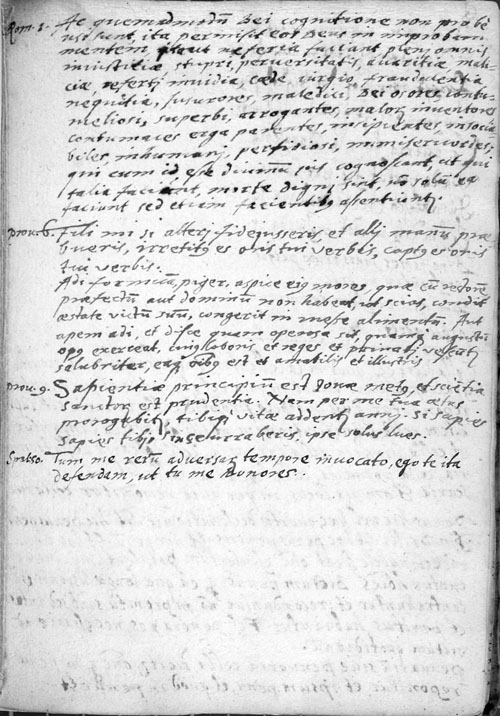 Rom. 1. Ac quemadmodũ Dei cognitione non probè
usi sunt, ita permisit eos Deus in improbam
mentem, ut nefaria faciant pleni omnis
iniustitiæ stupri, perversitatis, avaritiæ mali-
ciæ, referti invidia, cæde iurgio, fraudulentia
nequitia, susurrones, maledici, Dei osores contu-
meliosi, superbi, arrogantes, malorũ inventores
contumaces erga parentes, insipientes, insocia-
biles, inhumani, perfidiosi, immisericordes,
qui cum id esse divinum ius cognoscant, ut qui
talia faciant, morte digni sint, nõ solũ ea
faciunt sed etiam facientibus assentiunt.
Prou. 6. Fili mi si alteri fideiusseris et alij manũ præ
bueris, irretitus es oris tui verbis, captus es oris
tui verbis.
Adi formicam, piger, aspice eius mores, quæ cũ rectorẽ
præfectũ aut dominũ non habeat, ut scias, condit
æstate victũ suũ, congerit in messe alimentũ. Aut
apem adi, et disce quam operosa sit, quamque augustũ
opus exerceat, et reges et privati
salubriter, eaque omnibus est et amabilis et illustris
Prou. 9. Sapientiæ principium est Iovæ metus, et scientia
sanctorũ est prudentia. Nam per me tua ætas
prorogabitur, tibique vitæ addentur anni. Si sapies
sapies tibi, sin secus, ipse solus lues.
Tum me rerũ adversarũ tempore invocato, ego te ita
defendam, ut tu me honores.